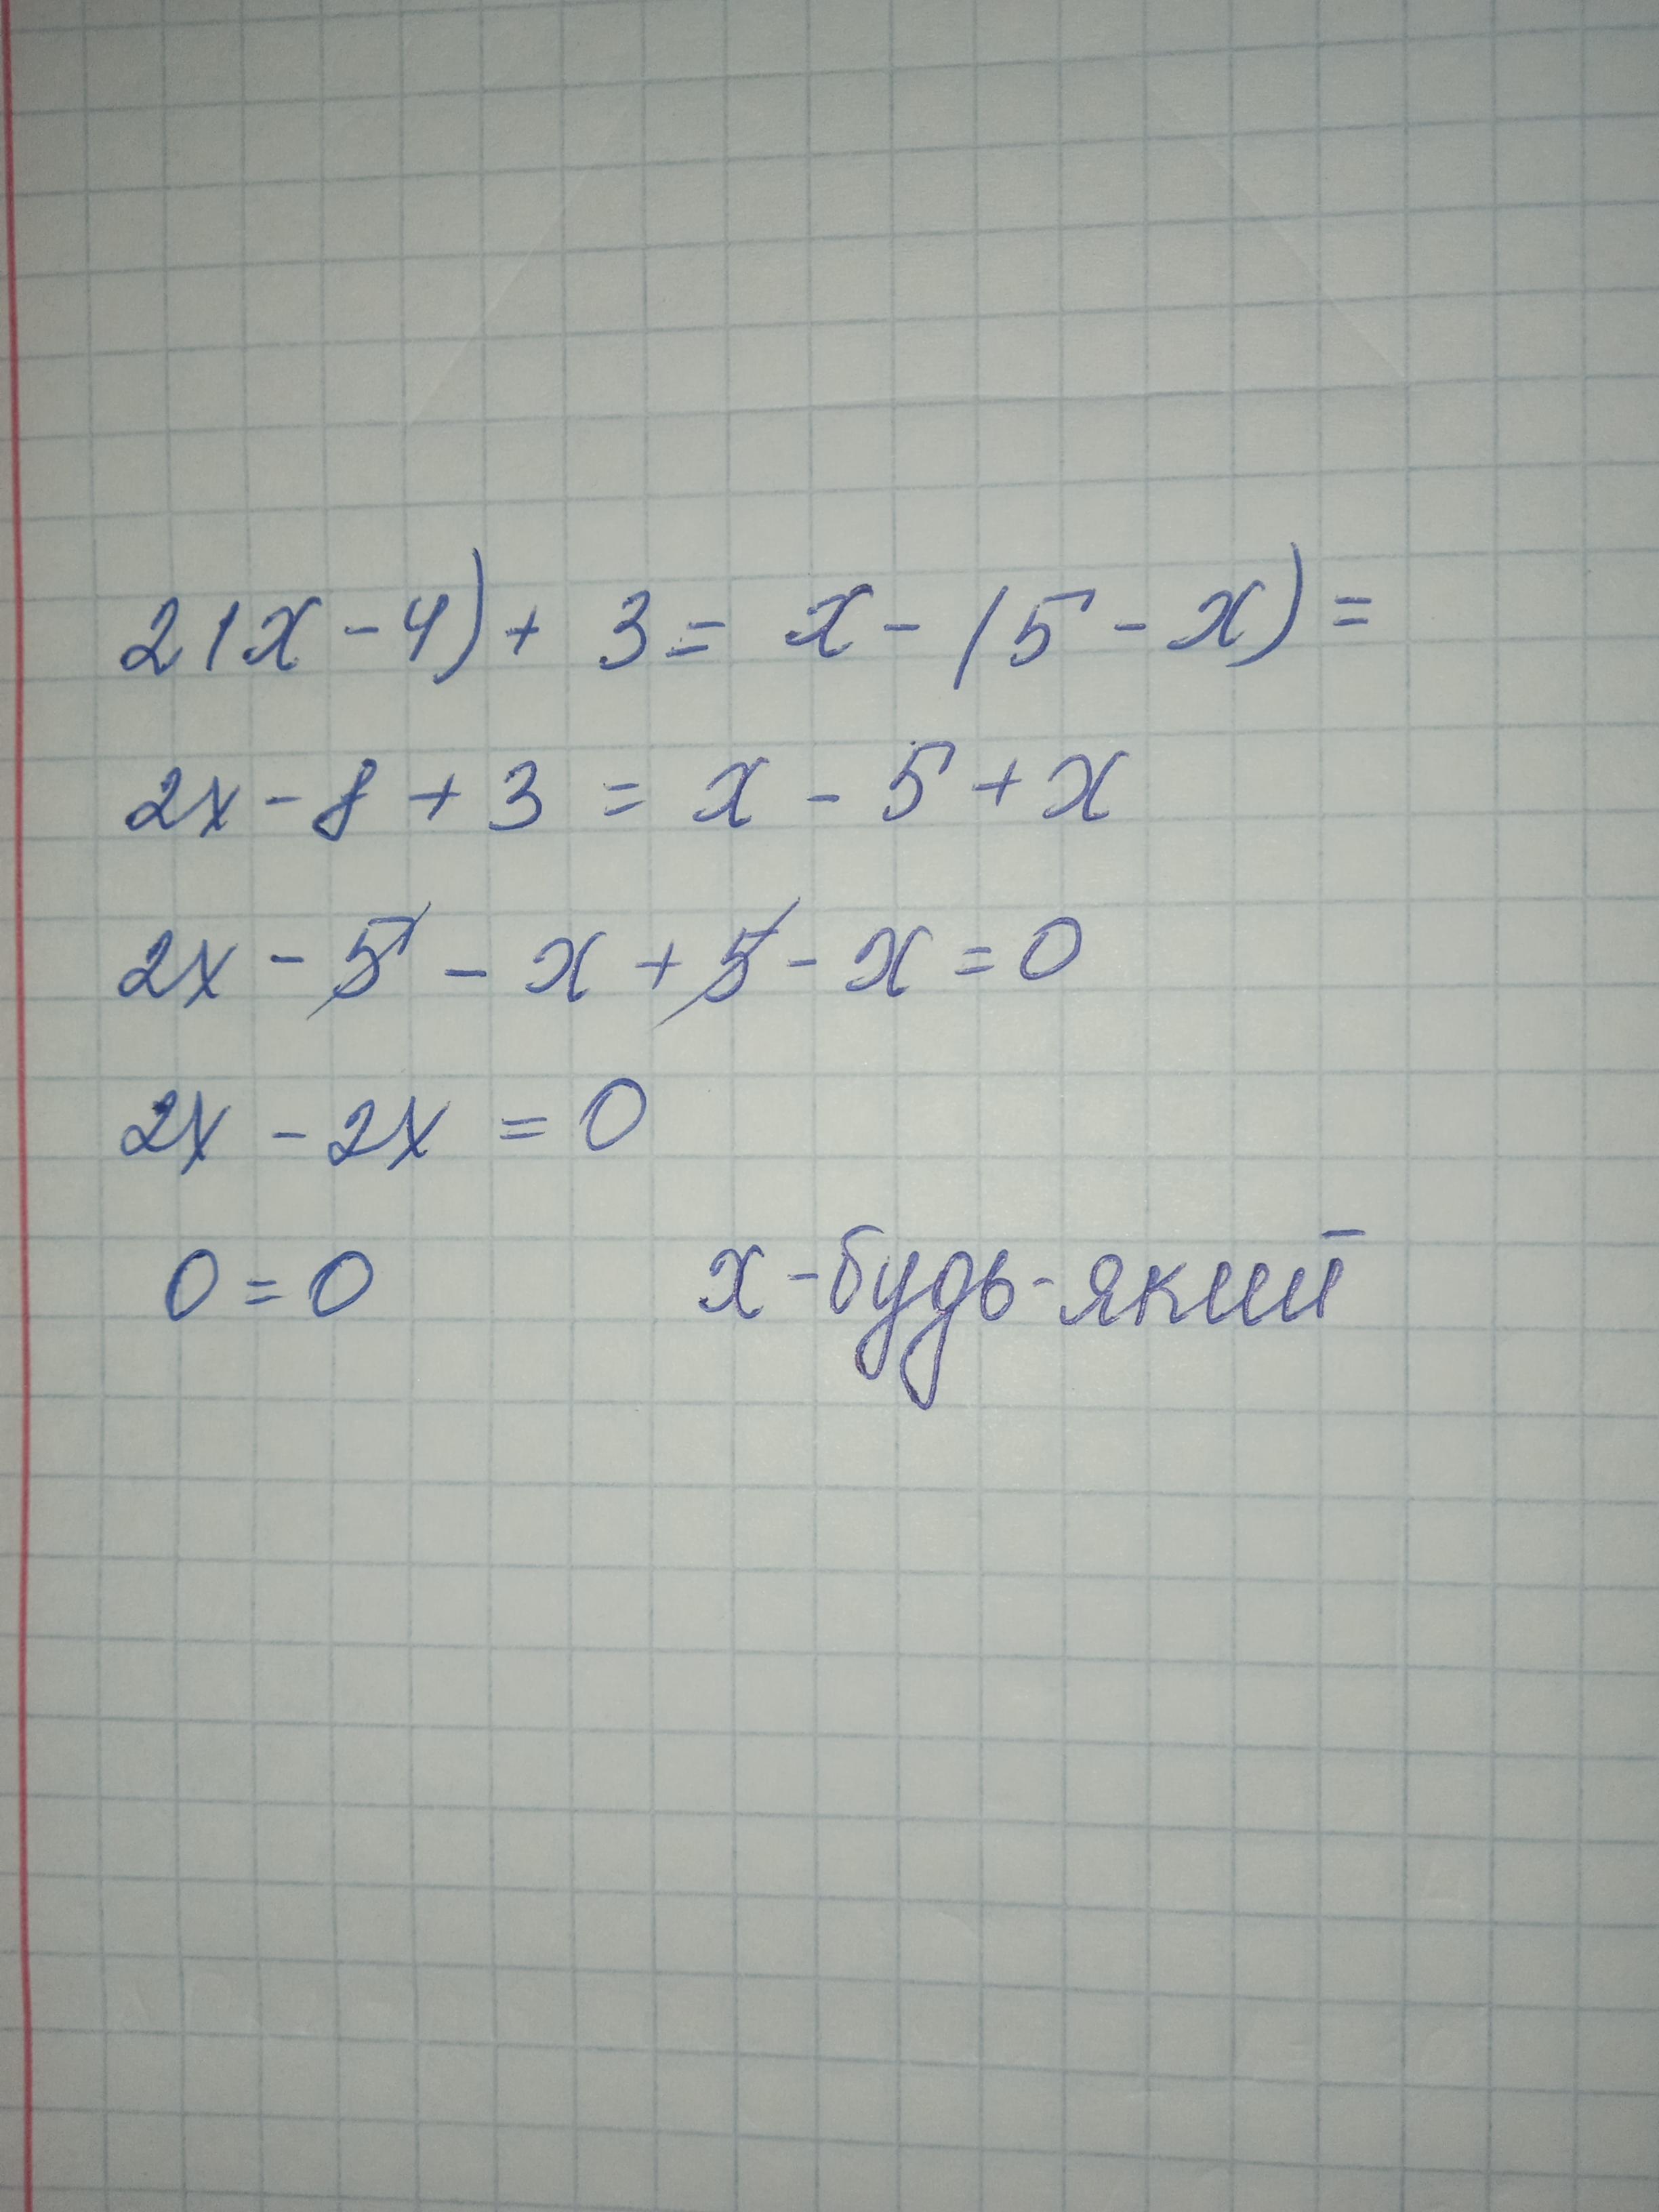 2(x-4)+3= x-(5-x)=
2x-8+3=x-5+x
2x-5-x+5-x=0
2x-2x=0
0=0 x-будь-який